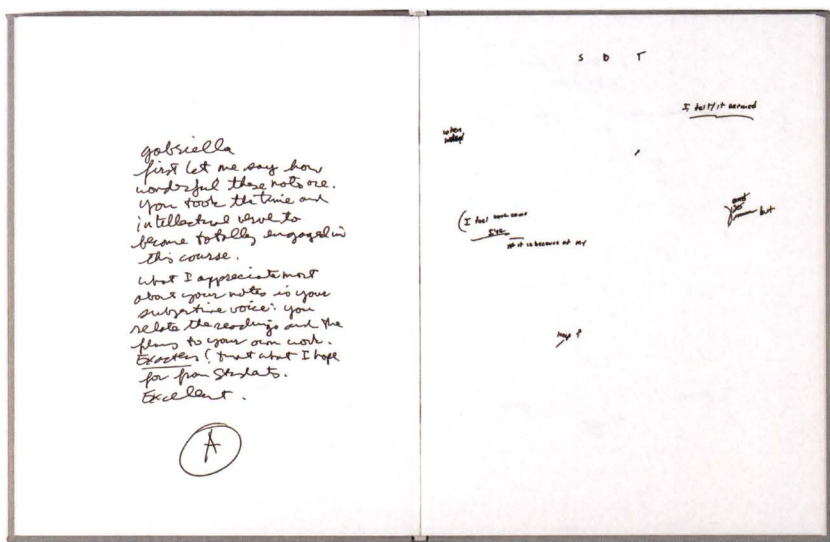 gabriella
first let me say how
wonderful these notes are.
you took the time and
intellectual verve to
become totally engaged in
this course.
what I appreciate most
about your notes is your
subjective voice: you
relate the readings and the
films to your own work.
Exactly! that what I hope
for from students.
Excellent.
A
S D T
I felt/it seemed
when
but
(I feel
it is because of my